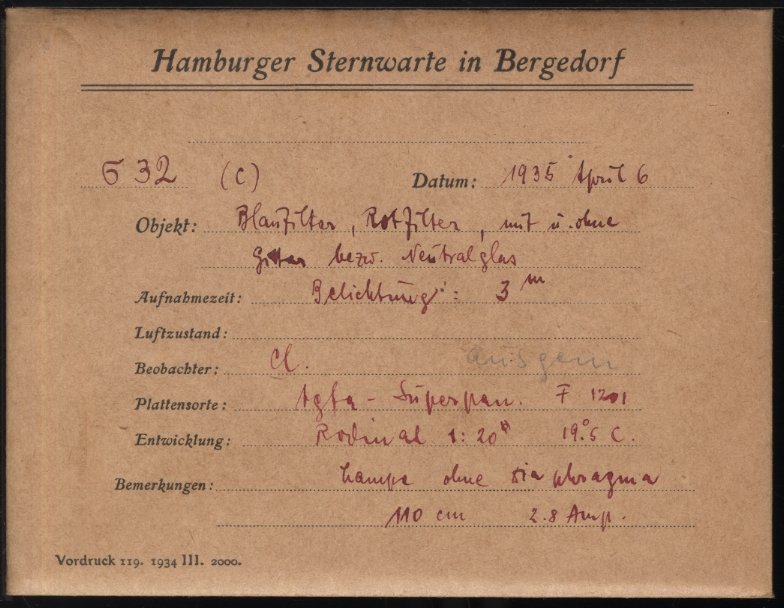 Hamburger Sternwarte in Bergedorf
G 32 (C) Datum: 1935 April 6
Objekt: Blaufilter, Rotfilter, mit u. ohne
Gitter bezw. Neutralglas
Aufnahmezeit: Belichtung: 3 m
Luftzustand:
Beobachter: Cl. ausgem
Plattensorte: Agfa - Superpan. F 1201
Entwicklung: Rodinal 1:20 19.°5 C.
Bemerkungen: Lampe ohne Diaphragma
110 cm 2.8 Amp.
Vordruck 119. 1934 III. 2000.